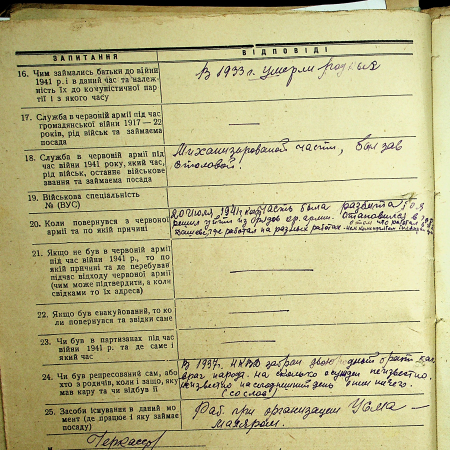 ЗАПИТАННЯ
ВІДПОВІДІ
16. Чим займались батьки до війни
1941 р. і в даний час та належ-
ність їх до комуністичної пар-
тії і з якого часу
В 1933 г. умерли родные
17. Служба в червоній армії під час
громадянської війни 1917—22
років, рід військ та займаєма
посада
—
18. Служба в червоній армії під
час війни 1941 року, який час,
рід військ, останнє військове
звання та займаєма посада
Механизированой часть, был зав
столовой.
19. Військова спеціальність
№ (ВУС)
20. Коли повернувся з червоної
армії та по якій причині
20 июля 1941 часть была разбита
ушёл из рядов кр. армии. Остановился в
работал на разных работах
21. Якщо не був в червоній армії
під час війни 1941 р., то по
якій причині та де перебував
підчас відходу червоної армії
(чим може підтвердити, а коли
свідками то їх адреса)
—
22. Якщо був евакуйований, то ко-
ли повернувся та звідки саме
—
23. Чи був в партизанах під час
війни 1941 р. та де саме і
який час
—
24. Чи був репресований сам, або
хто з родичів, коли і защо, яку
мав кару та чи відбув її
В 1937. НКВД забрал брат как
враг народ. на сколько осужден неизвестно.
неизвестно на сегоднешний день о нем ничего.
(со слов)
25. Засоби існування в даний мо-
мент (де працює і яку займає
посаду)
Раб. при организации
маляром.